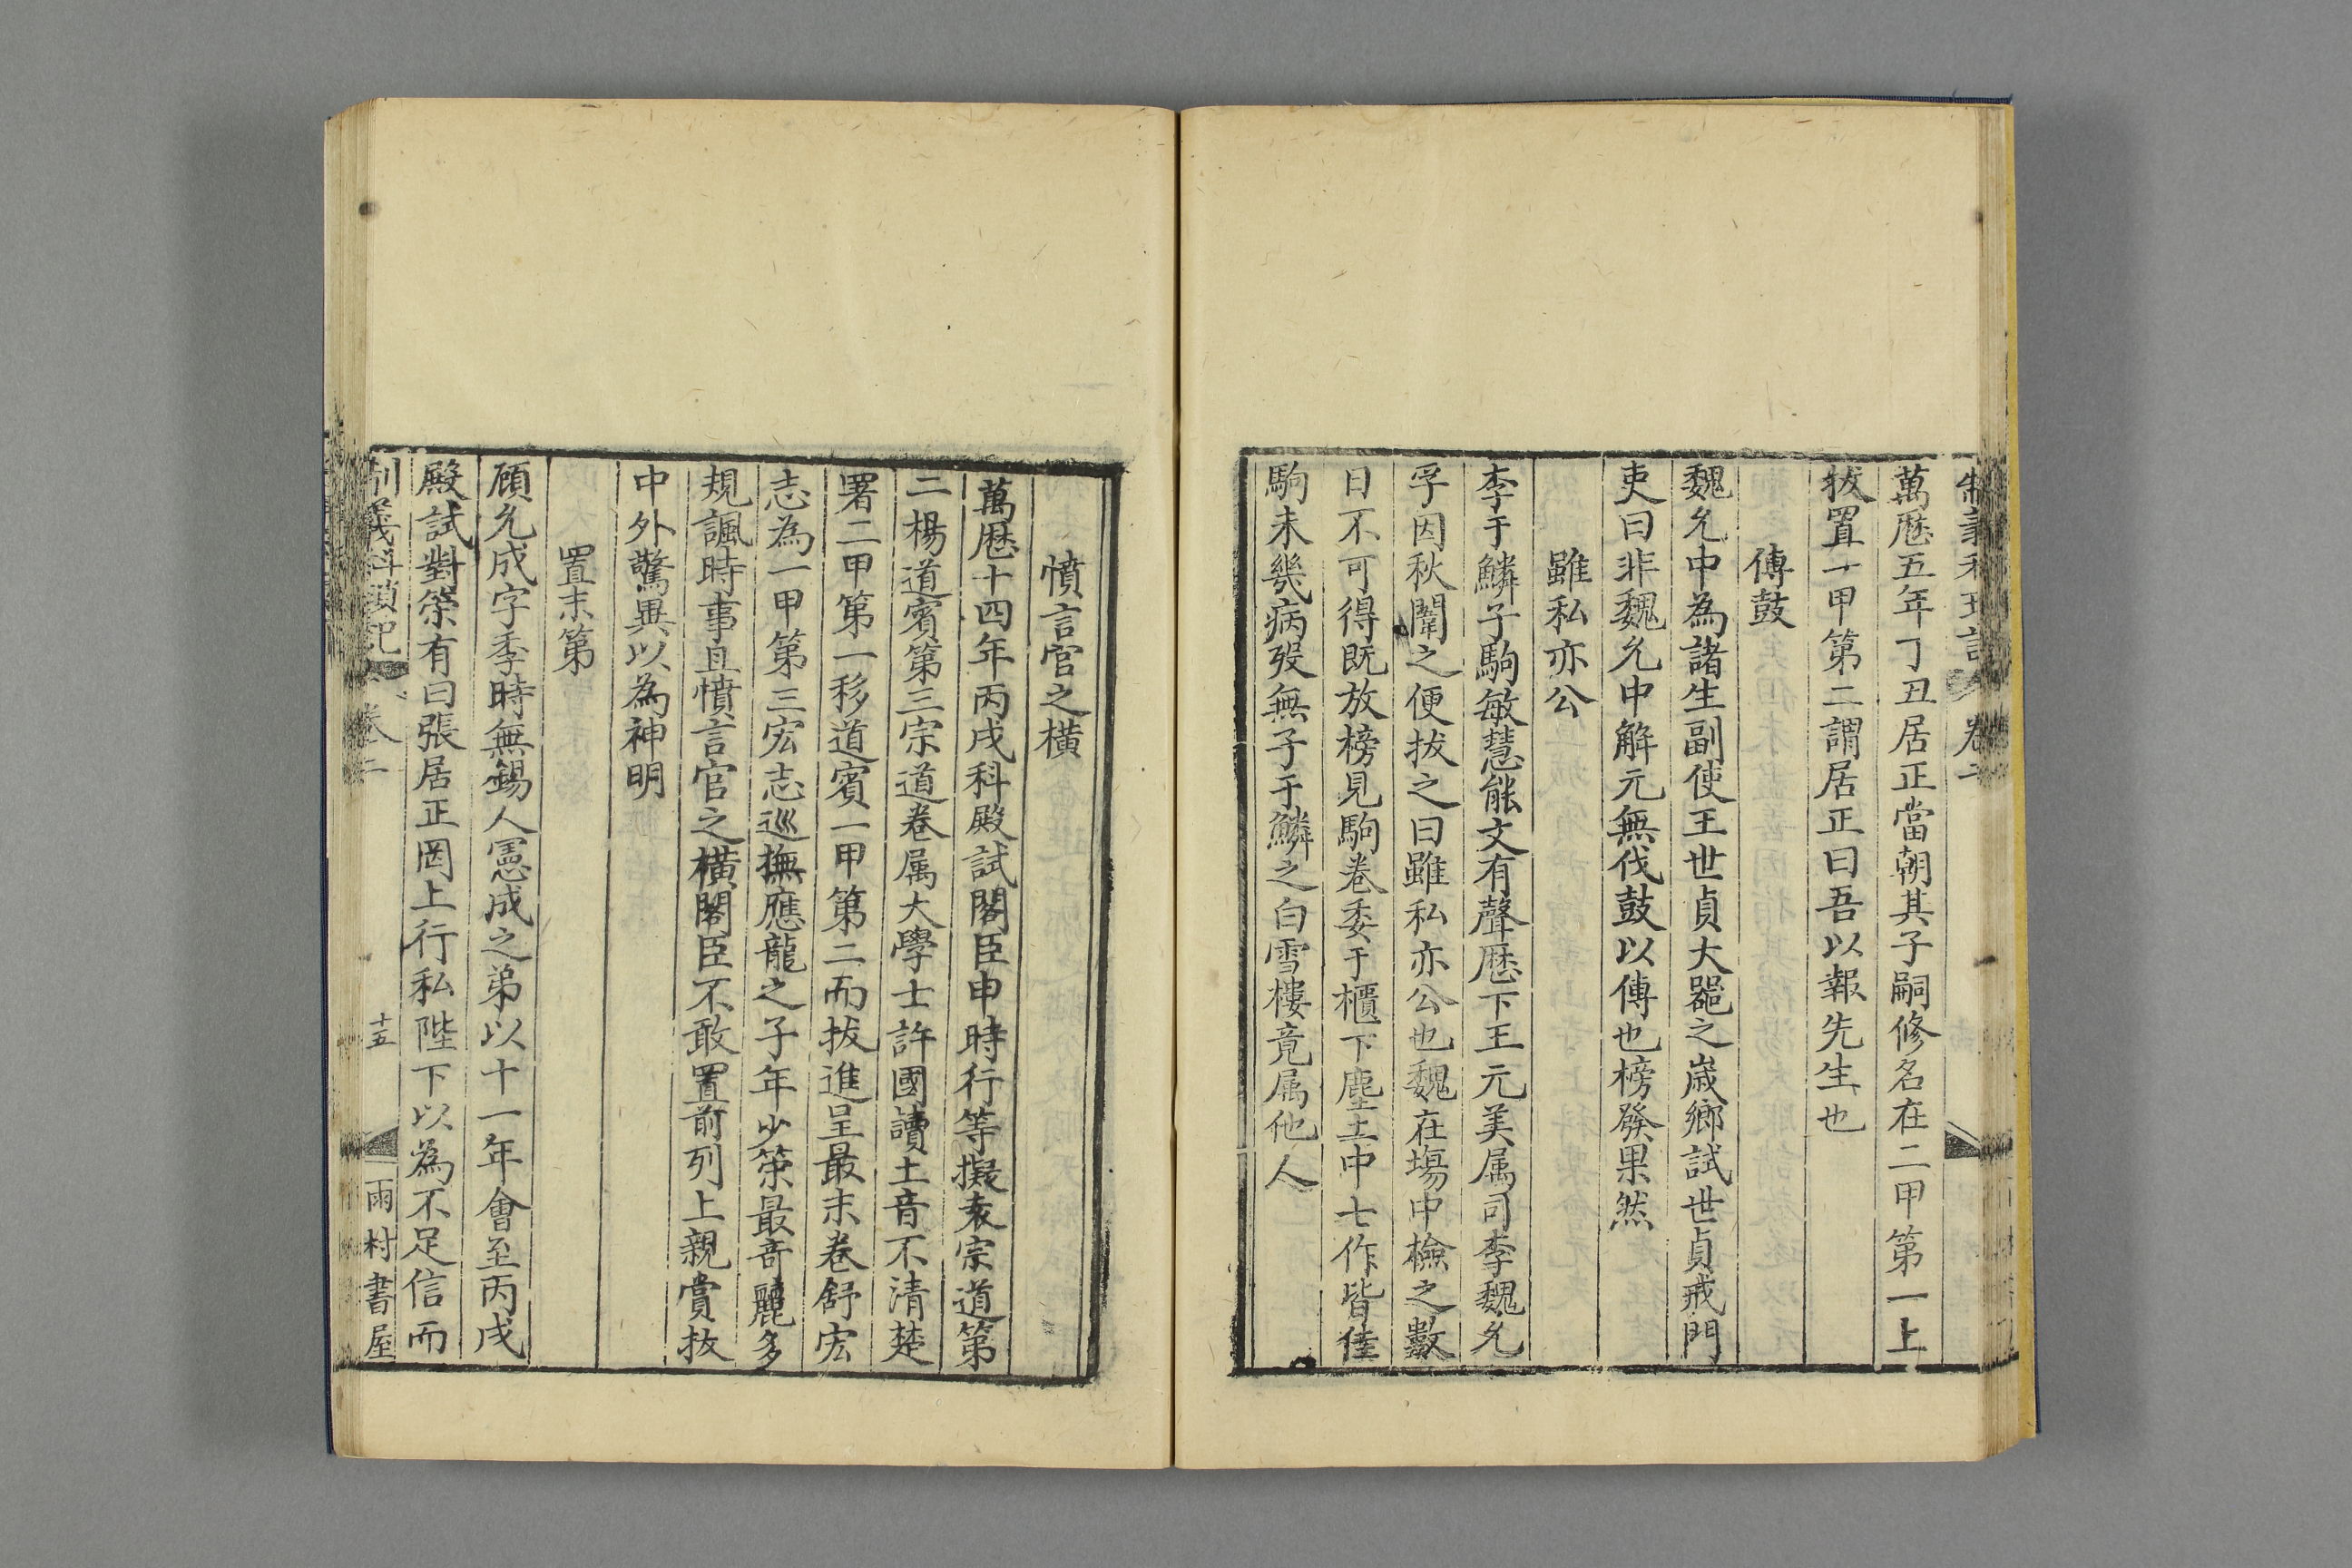 制義科瑣記 卷二
萬歷五年丁丑居正當朝其子嗣修名在二甲第一上
拔置一甲第二謂居正曰吾以報先生也
傳鼓
魏允中為諸生副使王世貞大器之嵗鄉試世貞戒門
吏曰非魏允中解元無伐鼓以傳也榜發果然
雖私亦公
李于鱗子駒敏慧能文有聲歷下王元美属司李魏允
孚因秋闈之便拔之曰雖私亦公也魏在塲中檢之數
日不可得既放榜見駒卷委于櫃下塵土中七作皆佳
駒未幾病歿無子于鱗之白雪樓竟属他人
憤言官之橫
萬歷十四年丙戌科殿試閣臣申時行等擬袁宗道第
二楊道賓第三宗道卷属大學士許國讀土音不清楚
署二甲第一移道賓一甲第二而拔進呈最末卷舒宏
志為一甲第三宏志巡撫應龍之子年少策最奇麗多
規諷時事且憤言官之橫閣臣不敢置前列上親賞拔
中外驚異以為神明
置末第
顧允成字季時無錫人憲成之弟以十一年會至丙戌
殿試對策有曰張居正罔上行私陛下以為不足信而
制義科瑣記 卷二 十五 雨村書屋